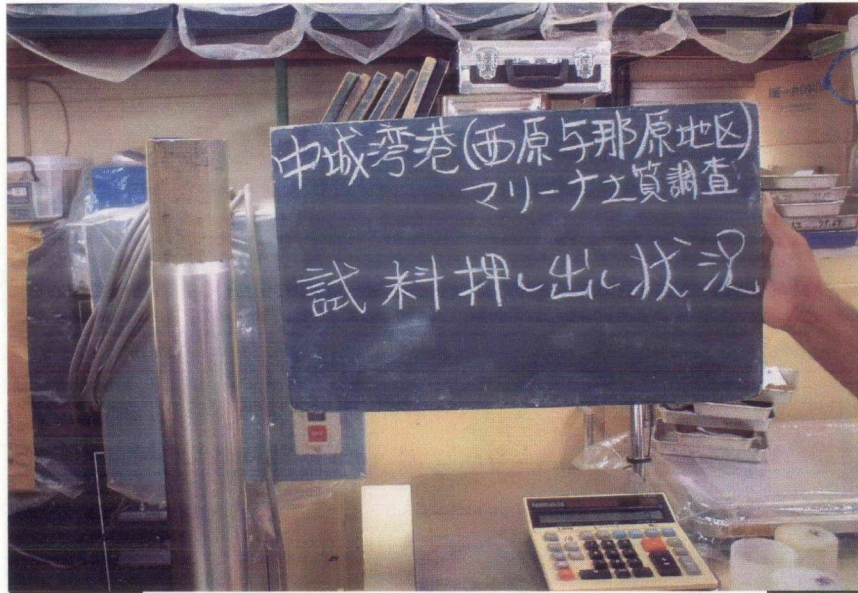 中城湾港(西原与那原地区)
マリーナ土質調査
試料押し出し状況